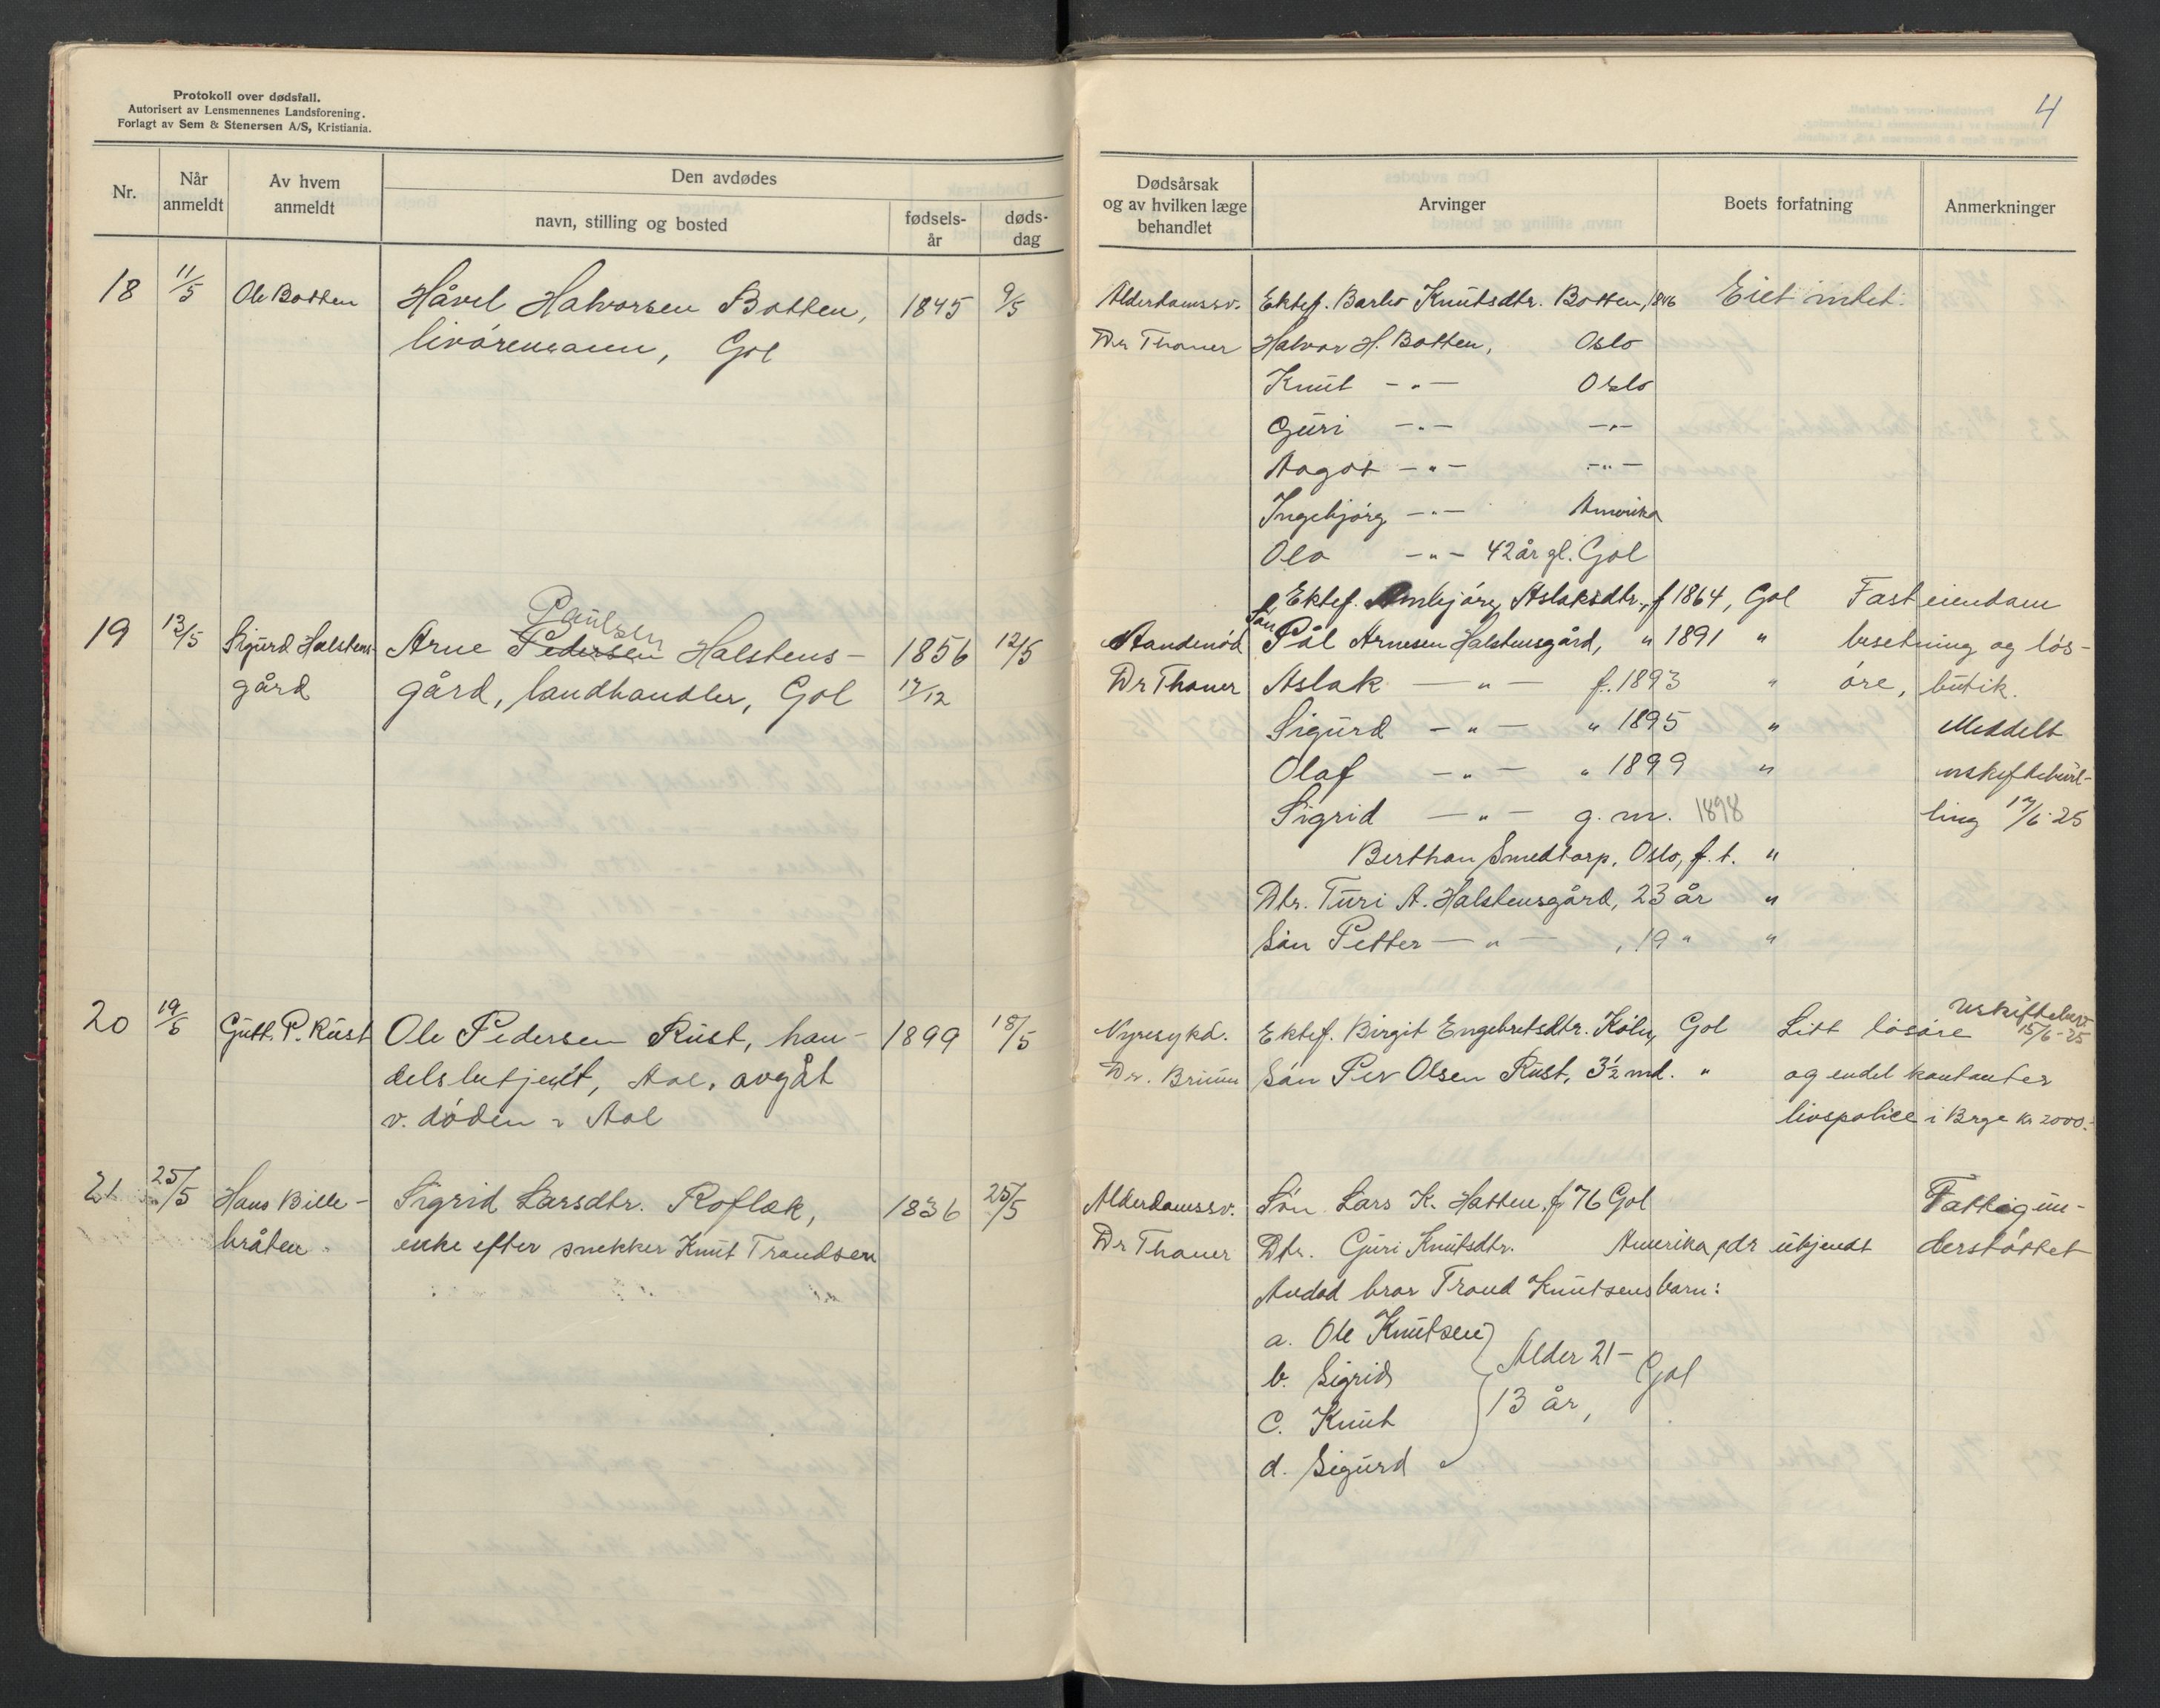 Protokoll over dødsfall.
Autorisert av Lensmennenes Landsforening.
Forlagt av Sem & Stenersen A/S, Kristiania.
Nr.
Når anmeldt
Av hvem anmeldt
Den avdødes
navn, stilling og bosted
fødsels-år
døds-dag
18 11/5 Ole Botten Håvel Halvorsen Botten, 1845 9/5
livøremann, Gol
19 13/5 Sigurd Halstens- Arne Pedersen Paulsen Halstens- 1856 12/5
gård gård, landhandler, Gol 17/12
20 19/5 Gutt. P. Rust Ole Pedersen Rust, han- 1899 18/5
delsbetjent, Aal, avgåt
v. døden i Aal
21 25/5 Hans Bille- Sigrid Larsdtr. Roflak, 1836 25/5
bråten enke efter snekker Knut Trondsen
4
Dødsårsak og av hvilken læge behandlet
Arvinger
Boets forfatning
Anmerkninger
Alderdomssv. Ektef. Barbo Knutsdtr. Botten, 1846 Eiet intet.
Dr Thaner Halvor H. Botten, Oslo
Knut -"- Oslo
Guri -"- -"-
Aagot -"- -"-
Ingebjørg -"- Amerika
Ola -"- 42 år gl. Gol
Ektef. Ambjørg Aslaksdtr., f 1864, Gol Fast eiendom
Aandenød Søn Pål Arnesen Halstensgård, " 1891 " besetning og løs-
Dr Thaner Aslak -"- f. 1893 " øre, butik.
Sigurd -"- " 1895 " Meddelt
Olaf -"- " 1899 " uskiftebevil-
Sigrid -"- g. m. 1898 ling 17/6 25
Berthan Smedtorp, Oslo, f. t. "
Dtr. Turi A. Halstensgård, 23 år "
Søn Petter -"- , 19 " "
Nyresykd. Ektef. Birgit Engebretsdtr. Gol Litt løsøre Uskiftebev. 15/6-25
Dr. Søn Per Olsen Rust, 3½ md. " og endel kontanter
livspolice i Brge kr 2000.-
Alderdomssv. Søn Lars K. Hatten, f 76 Gol Fattigun-
Dr Thaner Dtr. Guri Knutsdtr. Amerika, adr ukjendt derstøttet
Avdød bror Trond Knutsens barn:
a. Ole Knutsen
b. Sigrid Alder 21-
c. Knut 13 år, Gol
d. Sigurd